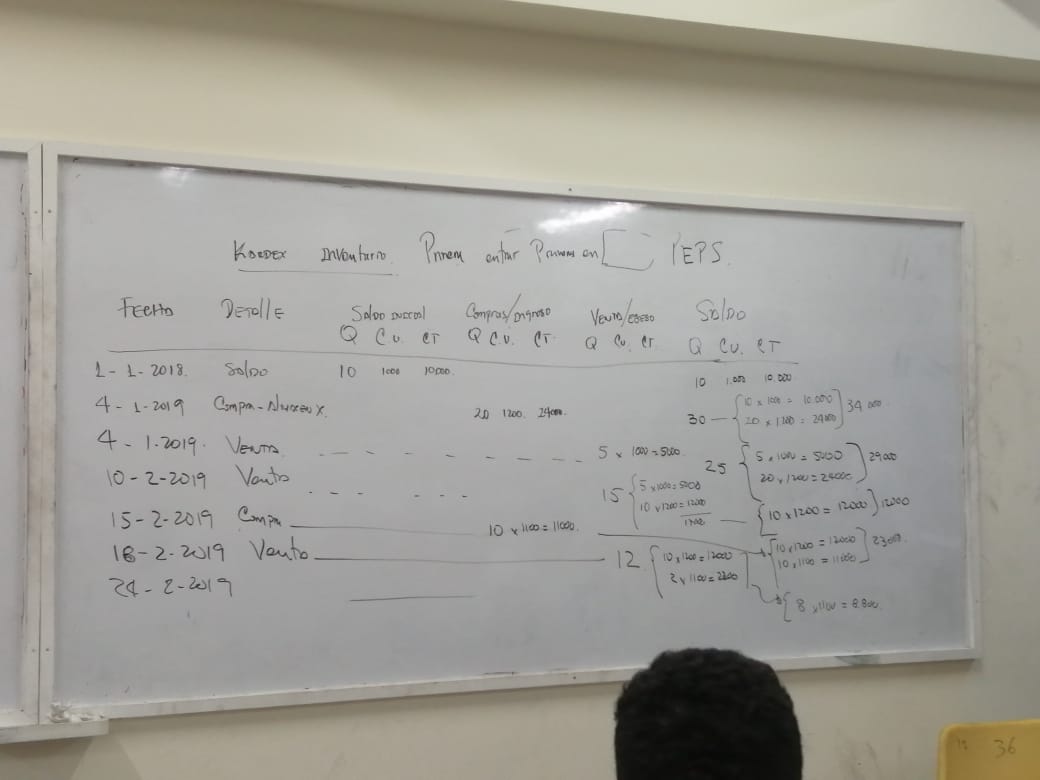 KARDEX INVENTARIO. Primera entrar Primeras en PEPS.
FECHA DETALLE Saldo inicial Compras/ingreso VENTA/EGRESO SALDO
Q C.U. CT Q C.U. CT. Q CU. CT. Q CU. CT
1-1-2018. Saldo 10 1000 10000. 10 1.000 10.000
4-1-2019 Compra- 20 1200. 24000. 30 — { 10 x 1000 = 10.000 } 34 000
20 x 1.200 = 24000
4-1.2019. VENTA. 5 x 1000 = 5000. 25 { 5 x 1000 = 5000 } 29000
20 x 1200 = 24000
10-2-2019 Venta 15 { 5 x 1000 = 5000
10 x 1200 = 12000 { 10 x 1200 = 12000 } 12000
15-2-2019 Compra 10 x 1100 = 11000. { 10 x 1200 = 12000 } 23000.
10 x 1100 = 11000
18-2-2019 Venta 12. { 10 x 1200 = 12000
2 x 1100 = 2200
24-2-2019 { 8 x 1100 = 8.800.
36